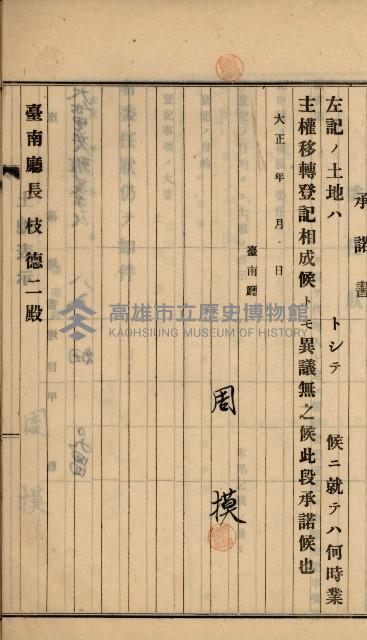 承諾書
左記ノ土地ハ　　　　トシテ　　　　候ニ就テハ何時業
主權移轉登記相成候トモ異議無之候此段承諾候也
大正　年　月　日
臺南廳
周摸
臺南廳長枝德二殿
高雄市立歷史博物館
KAOHSIUNG MUSEUM OF HISTORY